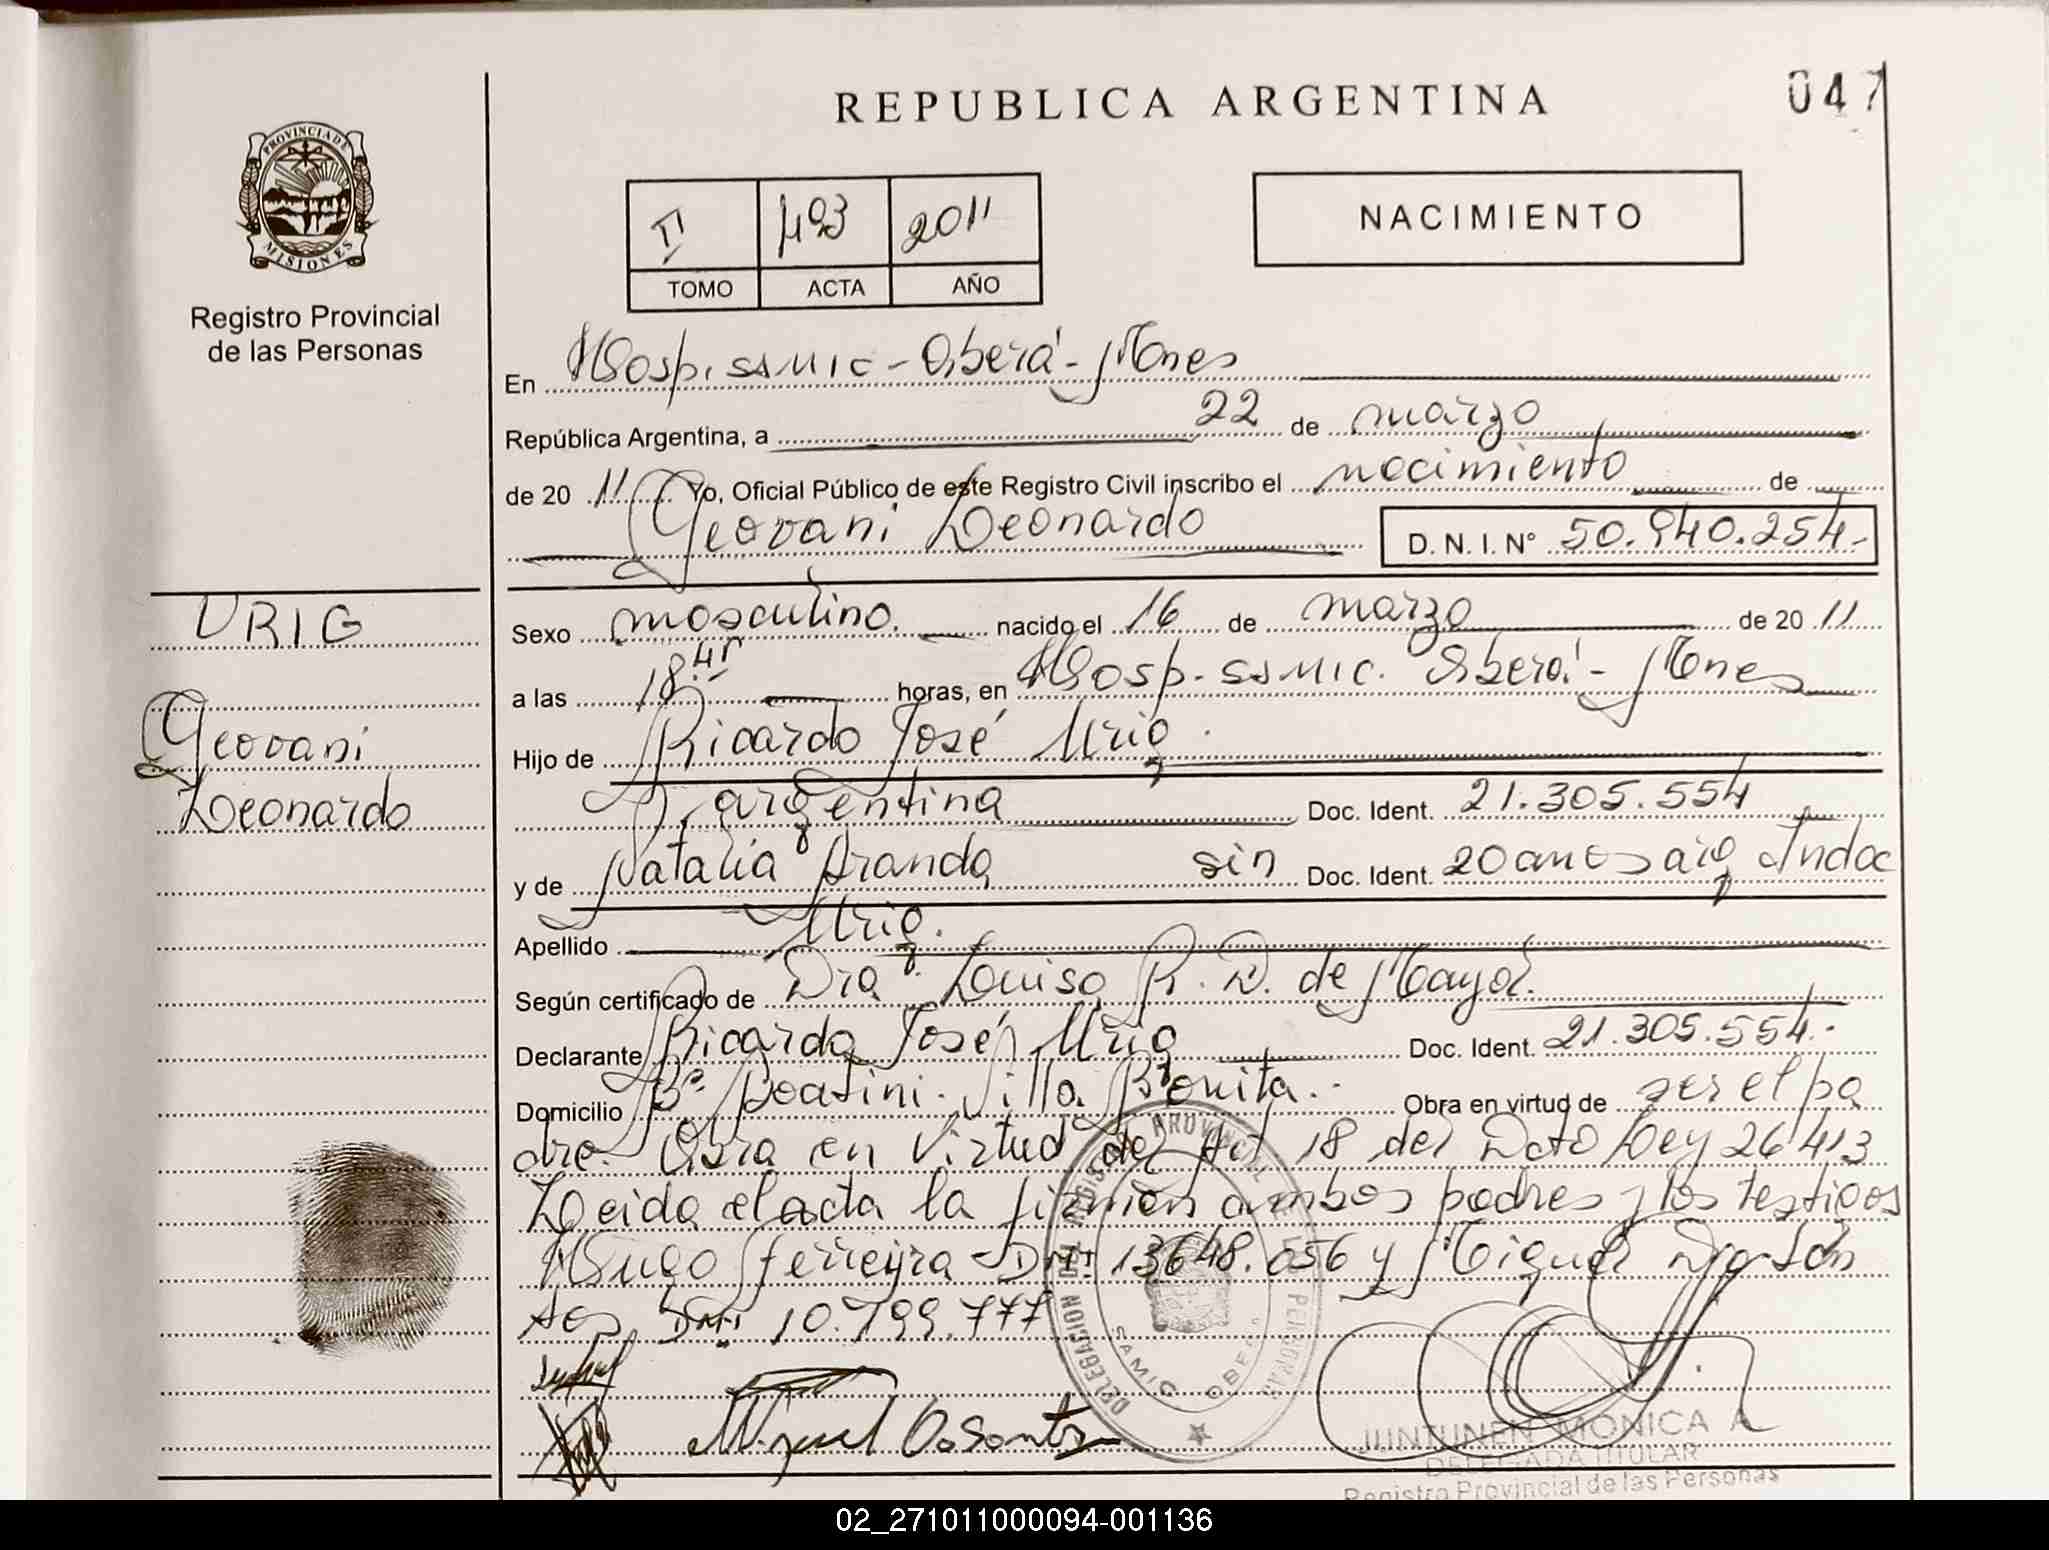 REPUBLICA ARGENTINA
047
PROVINCIA DE
MISIONES
Registro Provincial
de las Personas
II 493 2011
TOMO ACTA AÑO
NACIMIENTO
En Hosp. SAMIC - Oberá - Mnes
República Argentina, a 22 de marzo
de 20 11 Yo, Oficial Público de este Registro Civil inscribo el nacimiento de
Geovani Leonardo D. N. I. N° 50.940.254.-
URIG
Geovani
Leonardo
Sexo masculino. nacido el 16 de marzo de 20 11
a las 18. horas, en Hosp. SAMIC. Oberá - Mnes
Hijo de Ricardo José Urig.
argentina Doc. Ident. 21.305.554
y de Natalia Aranda sin Doc. Ident. 20 anos arg Indoc
Apellido Urig.
Según certificado de Dra. Luisa R. D. de Mayol.
Declarante Ricardo José Urig Doc. Ident. 21.305.554.-
Domicilio B° Villa Bonita.- Obra en virtud de ser el pa
dre. Obra en virtud del Art 18 del Dcto Ley 26413
Leida el acta la firman ambos padres y los testigos
Hugo Ferreyra - DNI 13648.056 y Miguel
DNI 10.799.777
Miguel
DELEGACION DEL REGISTRO PROVINCIAL DE LAS PERSONAS
SAMIC OBERA
JUNTUNEN MONICA A
DELEGADA TITULAR
Registro Provincial de las Personas
02_271011000094-001136